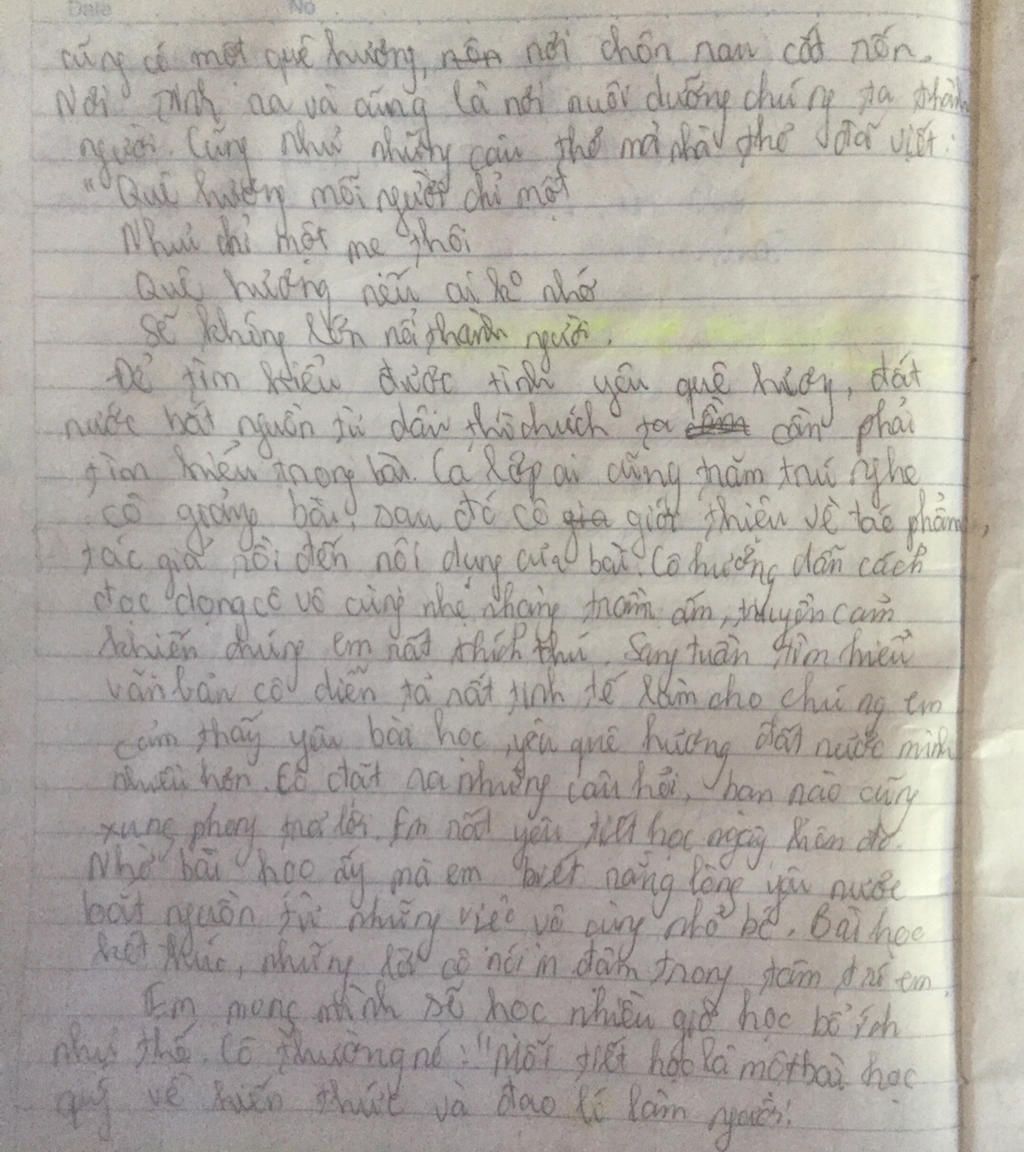 Date No
cũng có một quê hương, nên nơi chôn nau cắt rốn.
Nơi sinh ra và cũng là nơi nuôi dưỡng chúng ta thành
người. Cũng như những câu thơ mà nhà thơ đã viết:
"Quê hương mỗi người chỉ một
Như chỉ một mẹ thôi
Quê hương nếu ai ko nhớ
Sẽ không lớn nổi thành người.
Để tìm hiểu được tình yêu quê hương, đất
nước bắt nguồn từ đâu thì ta cần phải
tìm hiểu trong bài. Cả lớp ai cũng trăm trú nghe
cô giảng bài, sau đó cô gia giới thiệu về tác phẩm,
tác giả rồi đến nội dung của bài. Cô hướng dẫn cách
đọc dọng cô vô cùng nhẹ nhàng trầm ấm, truyền cảm
khiến chúng em rất thích thú. Sang tuần tìm hiểu
văn bản cô diễn tả rất tinh tế làm cho chúng em
cảm thấy yêu bài học, yêu quê hương đất nước mình
nhiều hơn. Cô đặt ra những câu hỏi, bạn nào cũng
xung phong trả lời. Em rất yêu tiết học ngày hôm đó.
Nhờ bài học ấy mà em biết rằng lòng yêu nước
bắt nguồn từ những việc vô cùng nhỏ bé. Bài học
kết thúc, những lời cô nói in đậm trong tâm trí em.
Em mong mình sẽ học nhiều giờ học bổ ích
như thế. Cô thường nó: "Mỗi tiết học là một bài học
quý về kiến thức và đạo lí làm người!